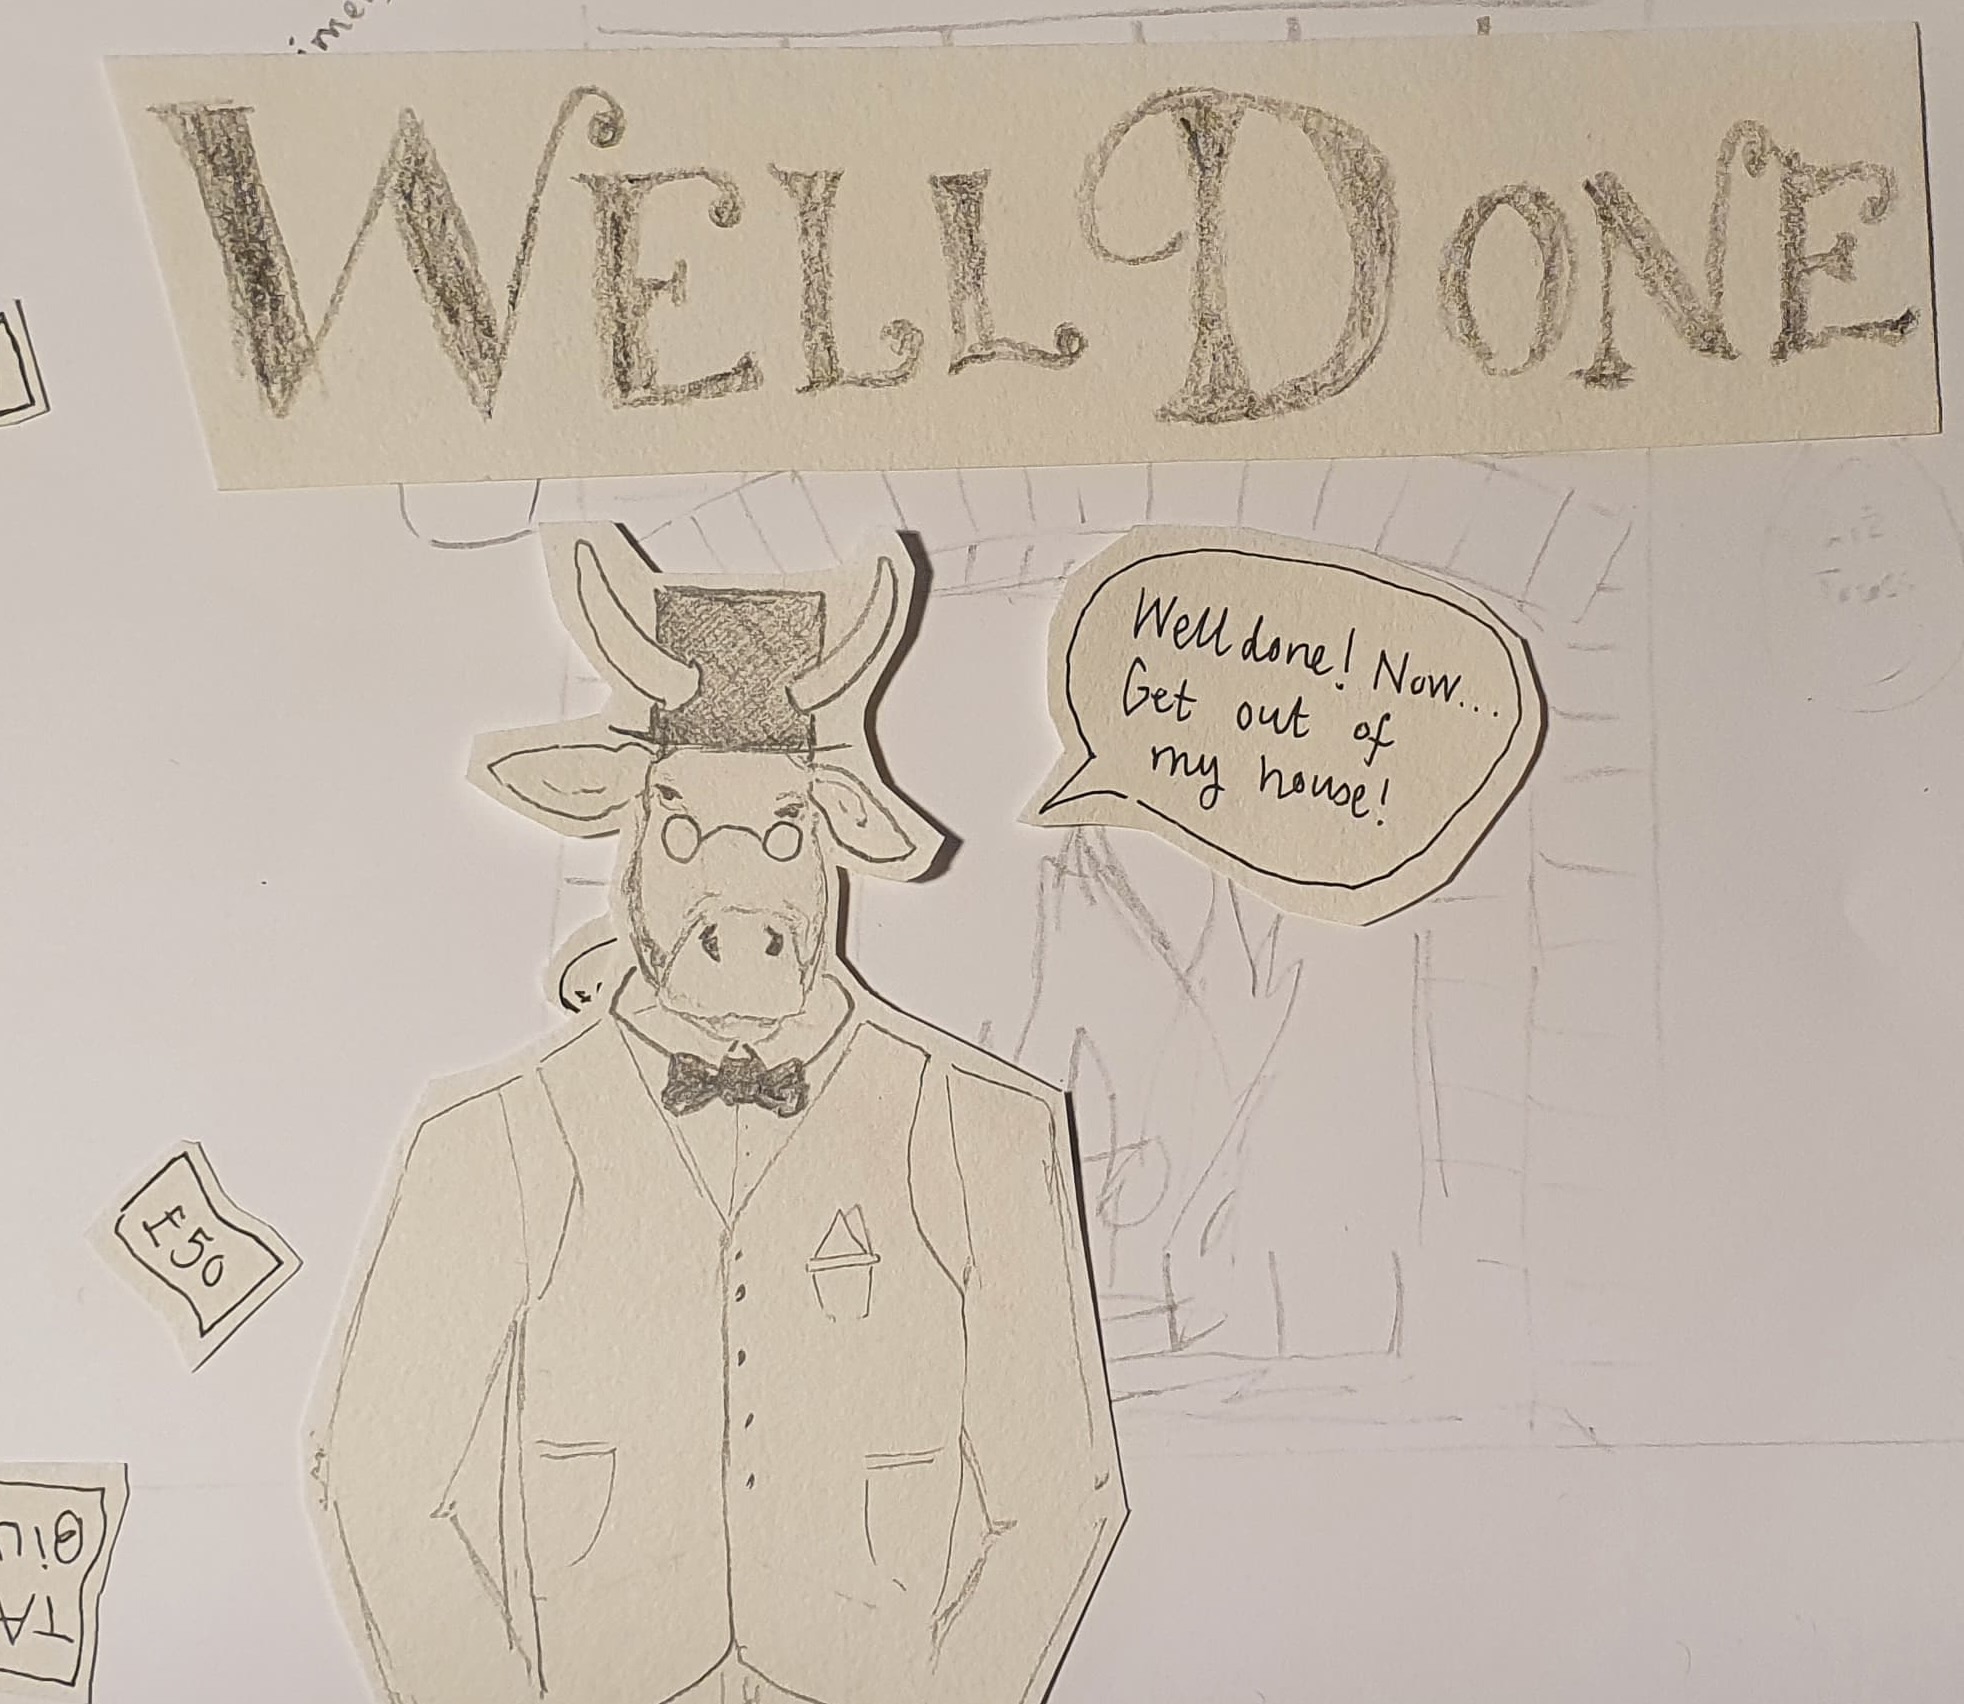 WELL DONE
Well done! Now...
Get out of
my house!
£50